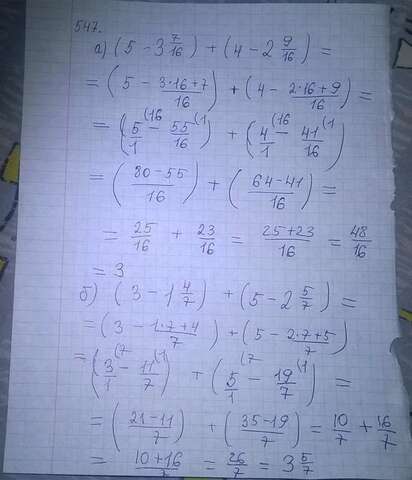 547.
а) (5 - 3 7/16) + (4 - 2 9/16) =
= (5 - (3·16+7)/16) + (4 - (2·16+9)/16) =
= (5/1 (16 - 55/16 (1) + (4/1 (16 - 41/16 (1)
= ((80-55)/16) + ((64-41)/16) =
= 25/16 + 23/16 = (25+23)/16 = 48/16
= 3
б) (3 - 1 4/7) + (5 - 2 5/7) =
= (3 - (1·7+4)/7) + (5 - (2·7+5)/7)
= (3/1 (7 - 11/7 (1) + (5/1 (7 - 19/7 (1) =
= ((21-11)/7) + ((35-19)/7) = 10/7 + 16/7
= (10+16)/7 = 26/7 = 3 5/7